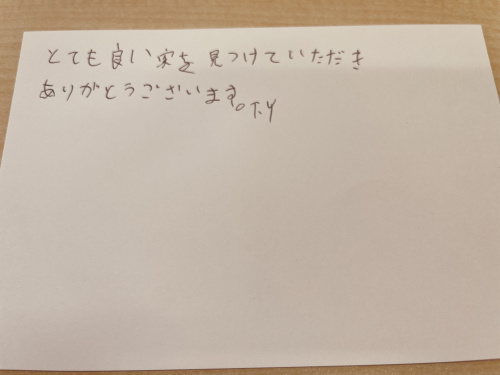 とても良い家を見つけていただき
ありがとうございます。T.Y